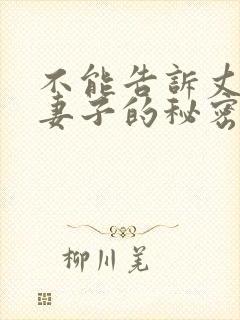 不能告訴丈
妻子的秘密
柳川羌